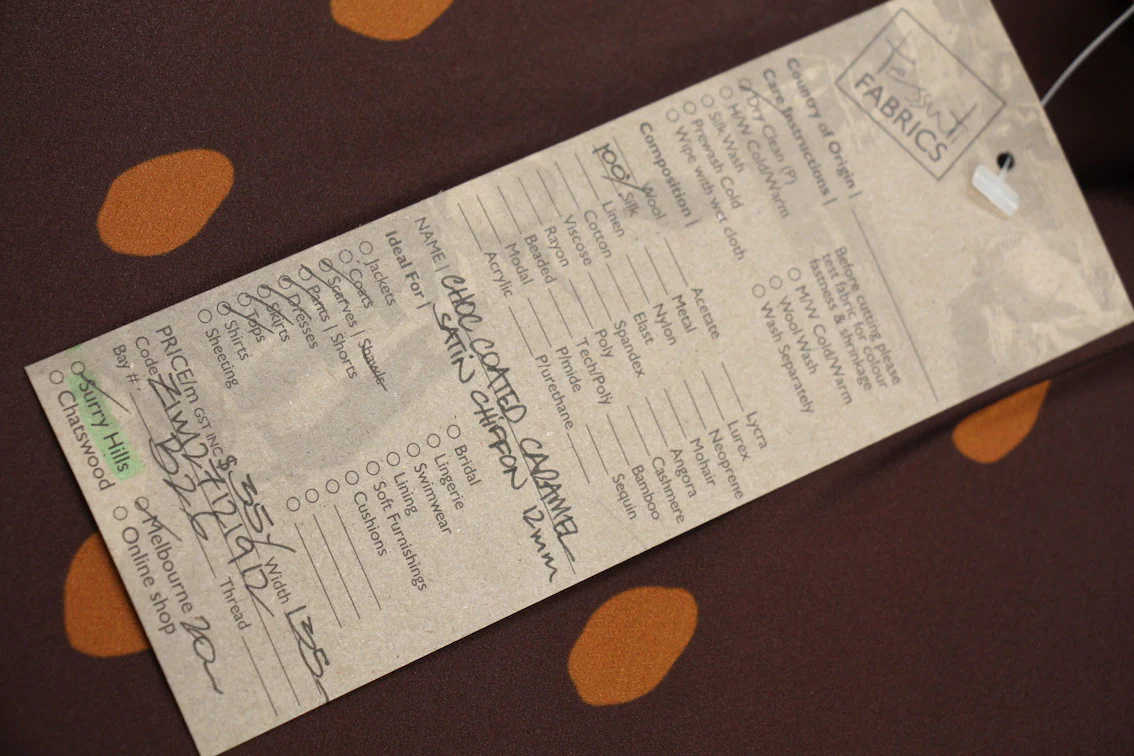 Tessuti
FABRICS
Country of Origin |
Care Instructions |
Dry Clean (P)
H/W Cold/Warm
Silk Wash
Prewash Cold
Wipe with wet cloth
Before cutting please
test fabric for colour
fastness & shrinkage
M/W Cold/Warm
Wool Wash
Wash Separately
Composition |
Wool
100/ Silk
Linen
Cotton
Viscose
Rayon
Beaded
Modal
Acrylic
Acetate
Metal
Nylon
Elast
Spandex
Poly
Tech/Poly
P/mide
P/urethane
Lycra
Lurex
Neoprene
Mohair
Angora
Cashmere
Bamboo
Sequin
NAME | CHOC COATED CARAMEL
SATIN CHIFFON 12mm
Ideal For |
Jackets
Coats
Scarves | Shawls
Pants | Shorts
Dresses
Skirts
Tops
Shirts
Sheeting
Bridal
Lingerie
Swimwear
Lining
Soft Furnishings
Cushions
PRICE/m GST INC $35/ Width 135
Code Thread
Bay #: B26
Surry Hills Melbourne
Chatswood Online shop